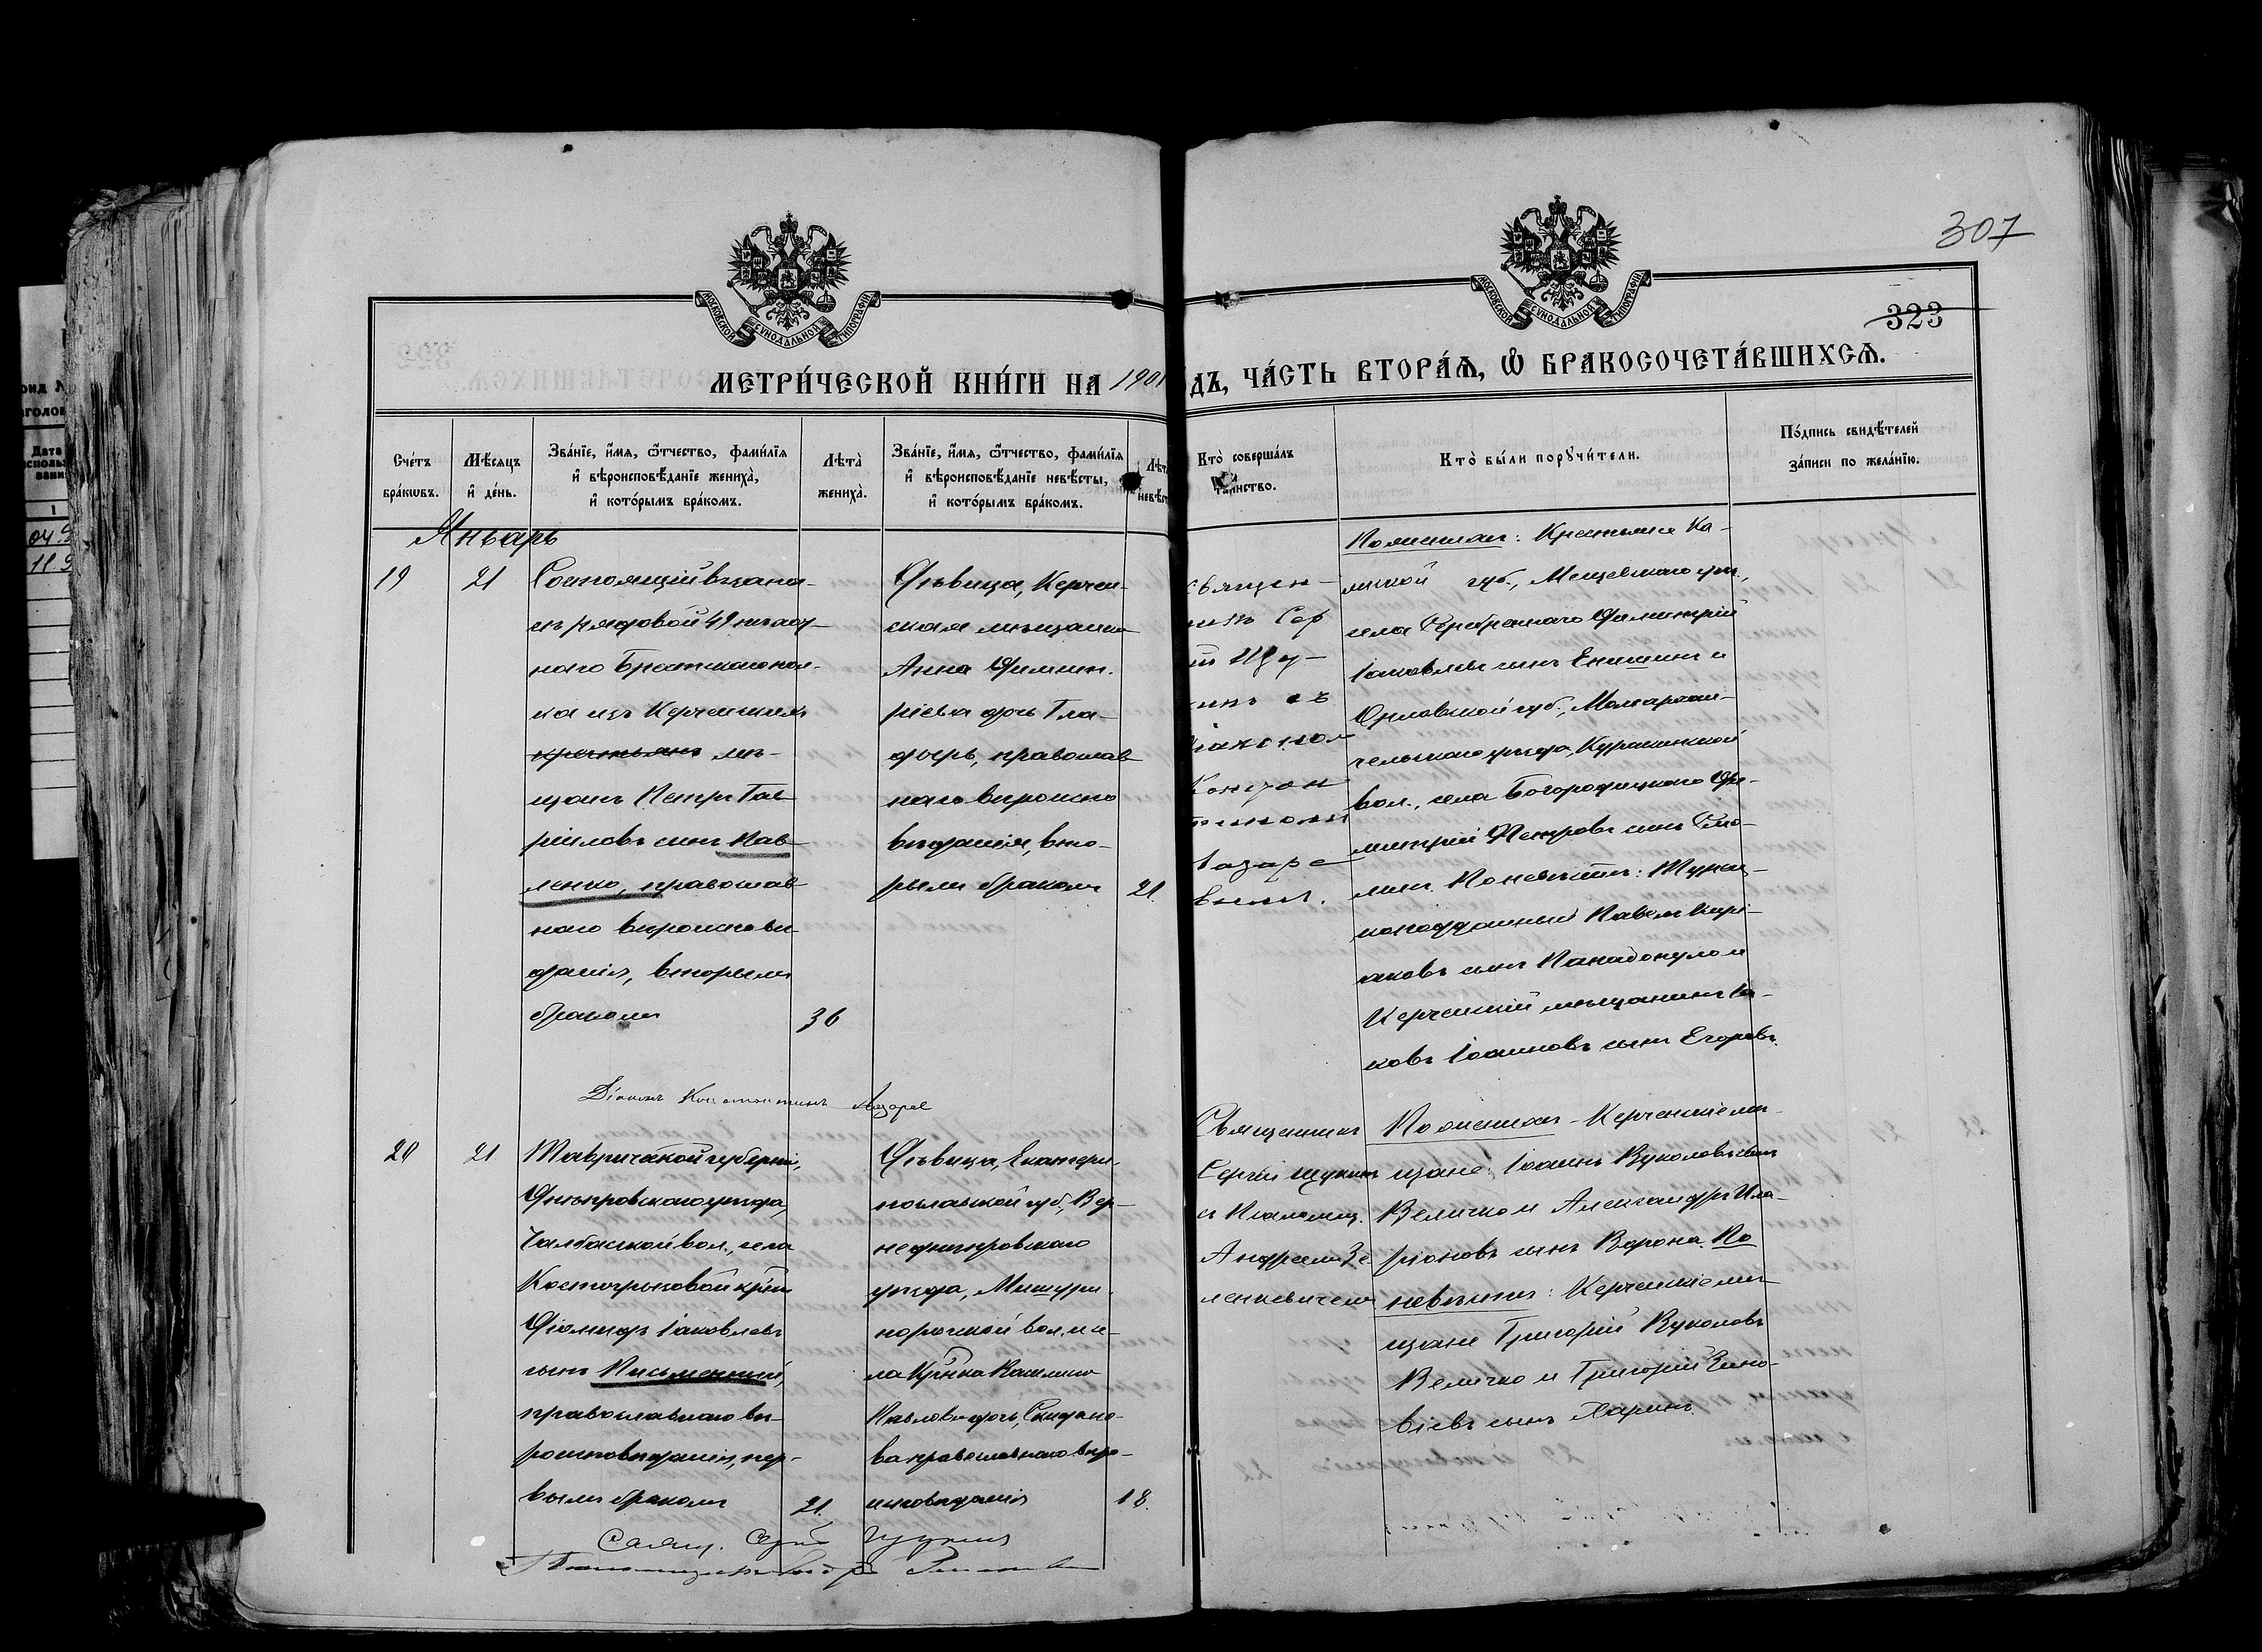 307
МОСКОВСКОЙ СѴНОДАЛЬНОЙ ТИПОГРАФІИ
МОСКОВСКОЙ СѴНОДАЛЬНОЙ ТИПОГРАФІИ
323
МЕТРИ́ЧЕСКОЙ КНИ́ГИ НА 1901
ДЪ, ЧА́СТЬ ВТОРА́Ѧ, Ѽ БРАКОСОЧЕТА́ВШИХСѦ.
Сче́тъ бра́кѡвъ.
Мѣ́сяцъ и҆ де́нь.
Зва́нїе, и҆́мя, ѻ҆́тчество, фами́лїя и҆ вѣроисповѣ́данїе жениха̀, и҆ кото́рымъ бра́комъ.
Лѣта̀ жениха̀.
Зва́нїе, и҆́мя, ѻ҆́тчество, фами́лїя и҆ вѣроисповѣ́данїе невѣ́сты, и҆ кото́рымъ бра́комъ.
Кто̀ соверша́лъ таинство.
Кто̀ бы́ли порꙋчи́тели.
По́дпись свидѣ́телей за́писи по жела́нїю.
Январь
19
21
Состоящій въ запа-
съ рядовой 49 пѣхот-
наго Брестскаго пол-
ка изъ Керченскихъ
крестьянъ мѣ-
щанъ Петръ Гав-
ріиловъ сынъ Пав-
ленко, православ
наго вѣроисповѣ-
данія, вторымъ
бракомъ
36
Дѣвица, Керчен-
ская мѣщанка
Анна Димит-
ріева дочь Гла-
дчерь, православ
наго вѣроиспо
вѣданія, вто-
рымъ бракомъ
21.
Священ-
никъ Сер
гій Щу-
кинъ съ
діакономъ
Констан
тиномъ
Лазаре
вымъ.
По женихѣ: Крестьяне Ка-
лужской губ., Мещевскаго уѣз.,
села Серебрянаго Димитрій
Іаковлевъ сынъ Енишинъ и
Орловской губ., Малоархан-
гельскаго уѣзда, Куракинской
вол., села Богородицкаго Ди-
митрій Петровъ сынъ
По невѣстѣ: Турец-
коподданный Павелъ Кирі-
аковъ сынъ Панадопуло и
Керченскій мѣщанинъ Іа-
ковъ Іоанновъ сынъ Егоровъ.
Діаконъ Константинъ Лазарев
20
21
Таврической губерніи,
Днѣпровскаго уѣзда,
Чалбаской вол., села
Костогрызовой крест
Діомидъ Іаковлевъ
сынъ Письменный,
православнаго вѣ-
роисповѣданія, пер-
вымъ бракомъ
21.
Дѣвица, Екатери-
нославской губ., Вер-
хнеднѣпровскаго
уѣзда, Мишури-
норогской вол., се-
ла
Павлова дочь, Скидано-
ва православнаго вѣро-
исповѣданія
18.
Священникъ
Сергій Щукинъ
съ Псаломщ.
Андреемъ Зе
ленкевичемъ
По женихѣ - Керченскіе мѣ-
щане: Іоаннъ Вуколовъ сынъ
Величко и Александръ Ила-
ріоновъ сынъ Ворона. По
невѣстѣ: Керченскіе мѣ-
щане Григорій Вуколовъ
Величко и Григорій Зино-
віевъ сынъ Харинъ.
Свящ. Сергій Щукинъ